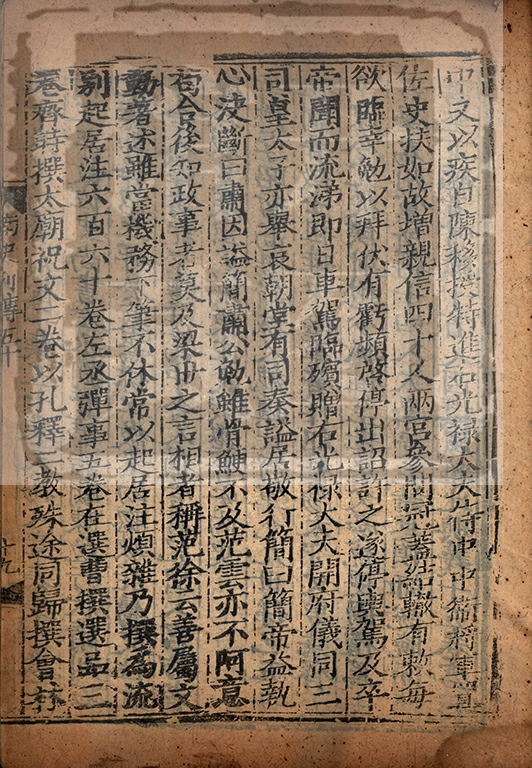 中文以疾自陳移授特進右光祿大夫侍中中衛將軍置
佐史扶如故增親信四十人兩宮參問冠蓋結轍有敕每
欲臨幸勉以拜伏有虧頻啓停出詔許之遂停輿駕及卒
帝聞而流涕即日車駕臨殯贈右光祿大夫開府儀同三
司皇太子亦舉哀朝堂有司奏謚居敬行簡曰簡帝益執
心决斷曰肅因謚簡肅公勉雖骨鯁不及范雲亦不阿意
苟合後知政事者莫及梁世之言相者稱范徐云善屬文
勤著述雖當機務下筆不休常以起居注煩雜乃撰為流
别起居注六百六十卷左丞彈事五卷在選曹撰選品三
卷齊時撰太廟祝文二卷以孔釋二教殊途同歸撰會林
南史列傳五十
十九